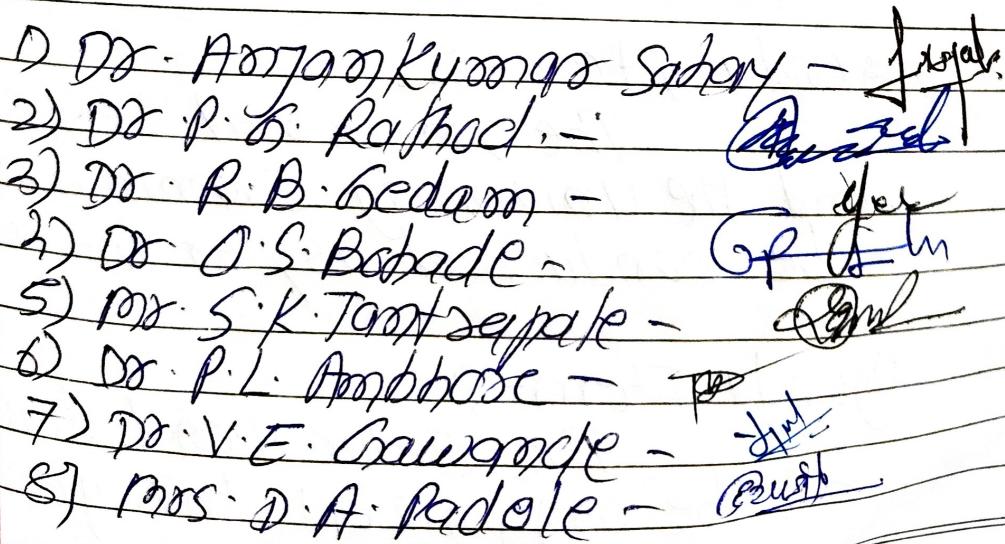 1) Dr. Anjan Kumar Sahay -
2) Dr. P. G. Rathod. -
3) Dr. R. B. Gedam -
4) Dr O. S. Bobade -
5) Mr. S. K. Tantrapale -
6) Dr. P. L. Ambhore -
7) Dr. V. E. Gawande -
8) Mrs. D. A. Padole -